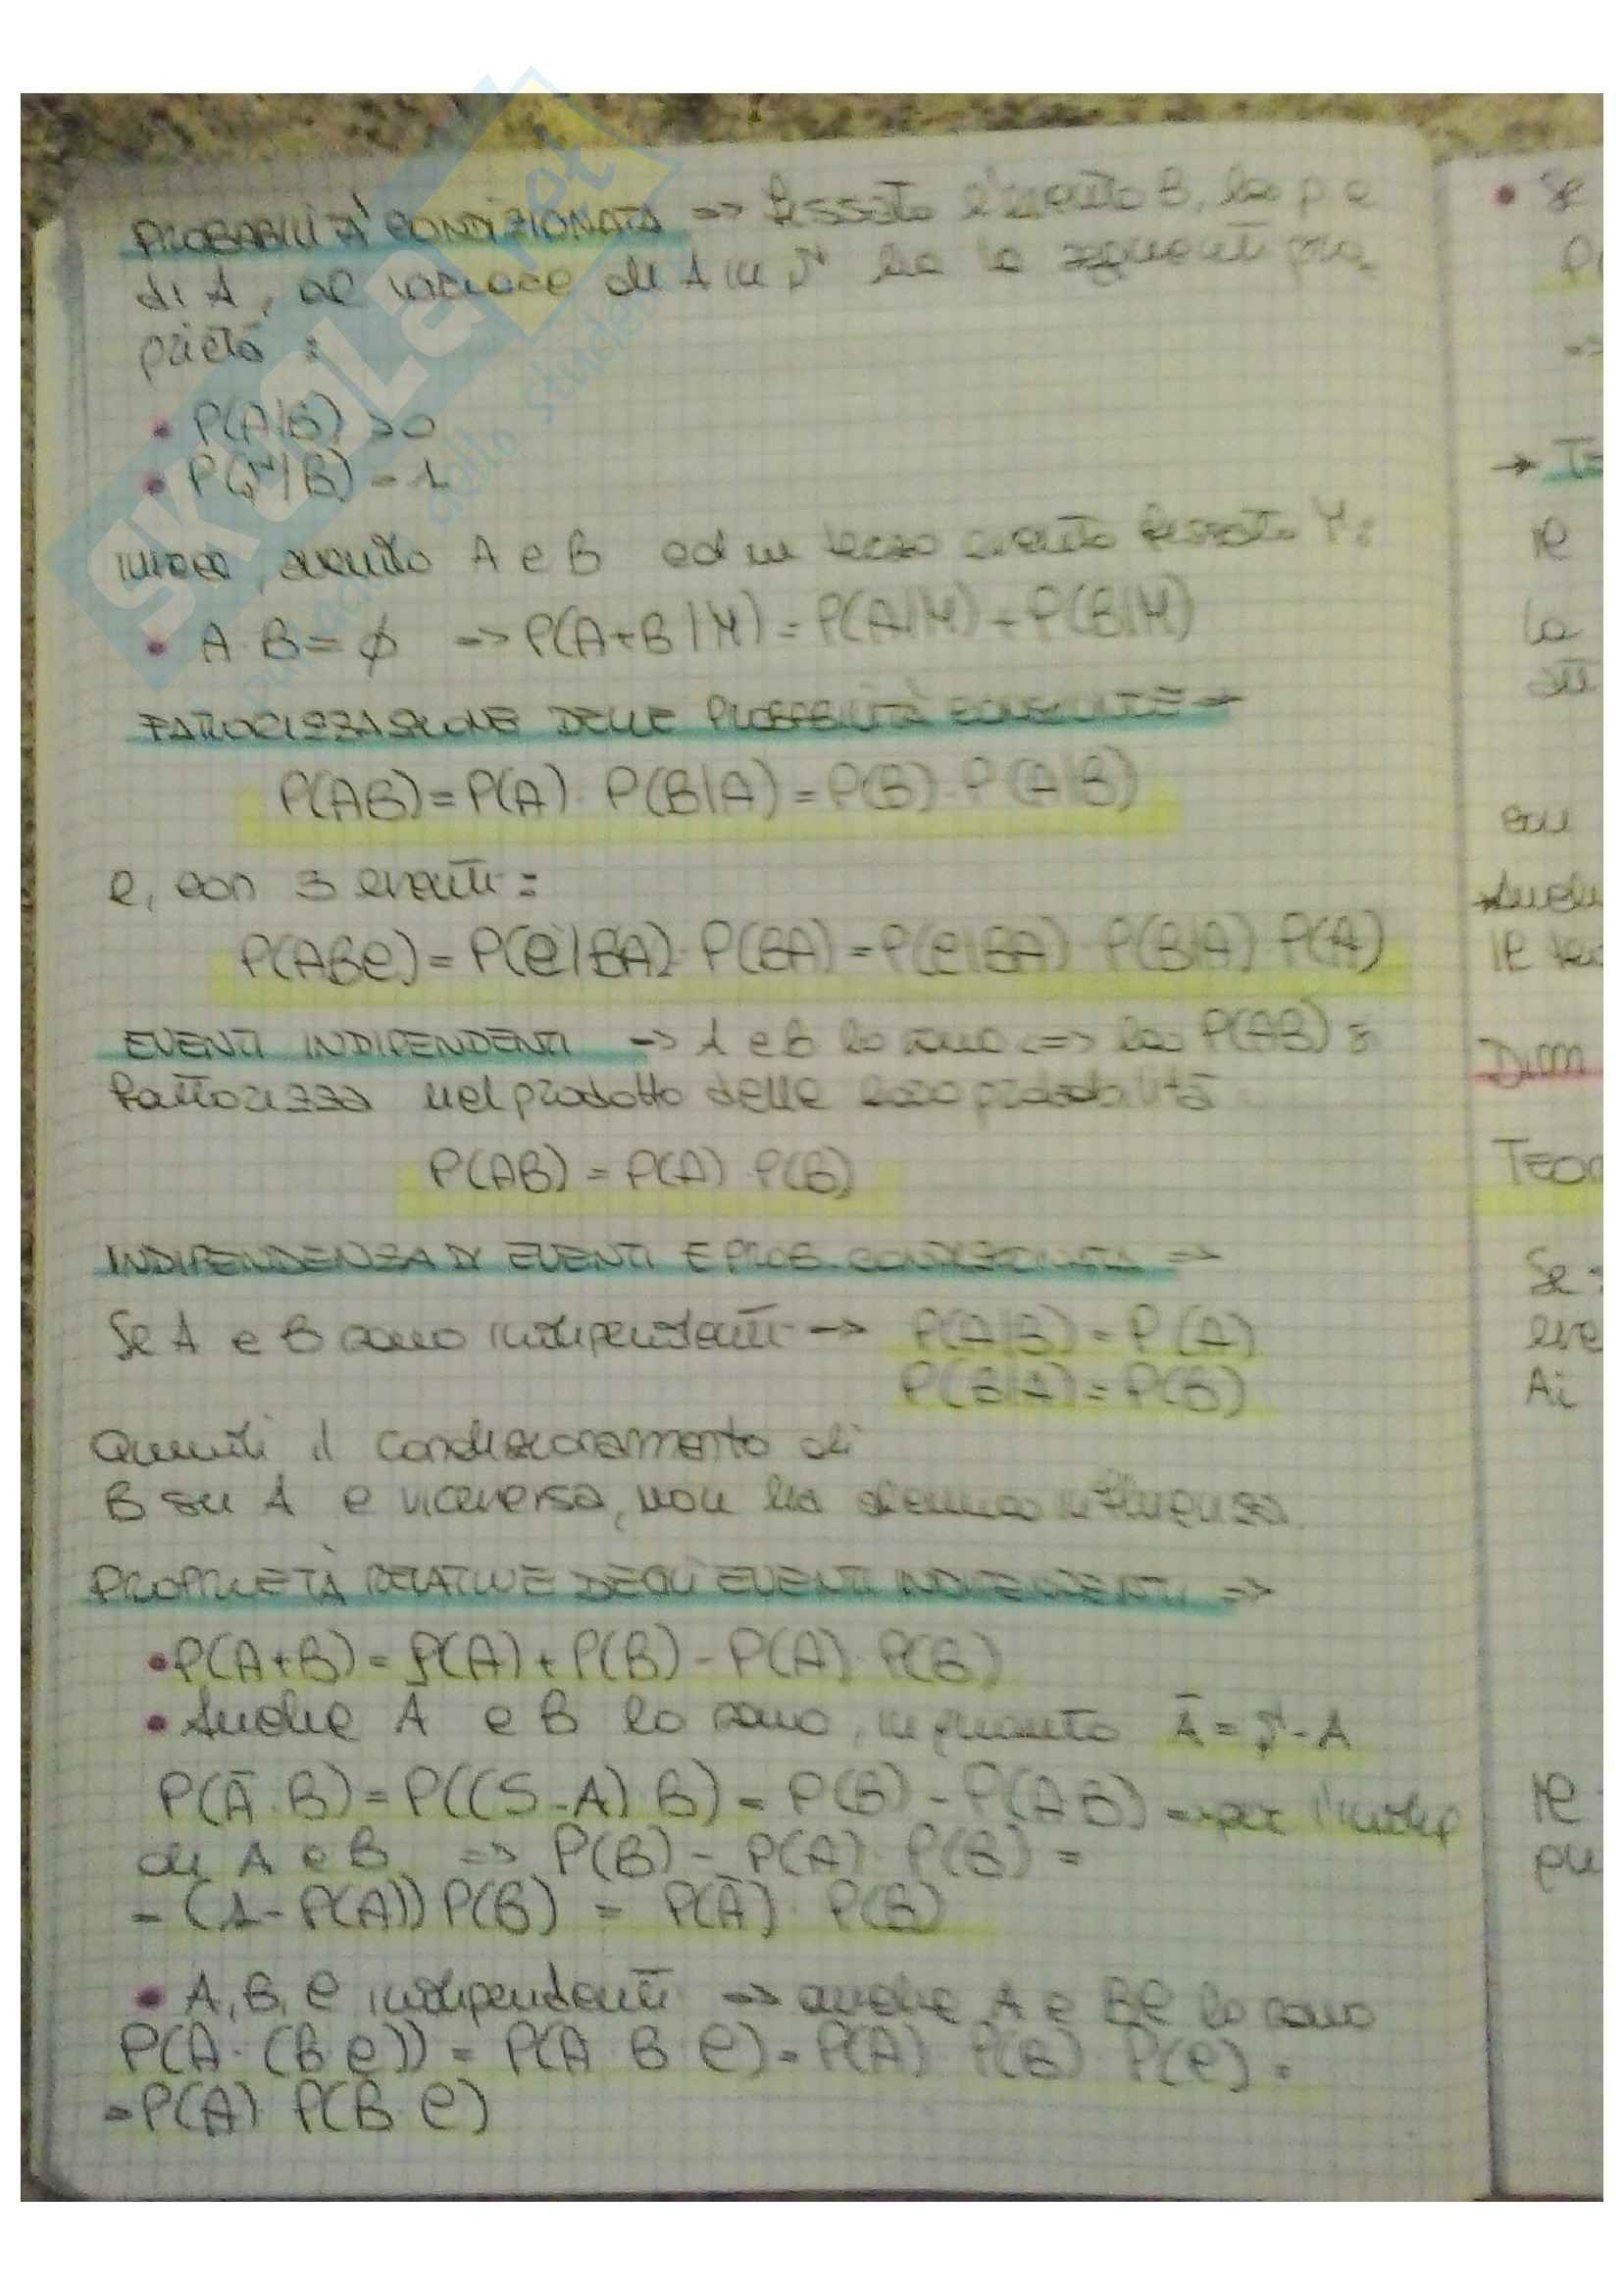 PROBABILITÀ CONDIZIONATA => fissato l'evento B, la p c
di A, al variare di A in S ha le seguenti pro
prietà :
• P(A|B) >0
• P(S|B) = 1
evento A e B ed un terzo evento fissato M:
• A·B=∅ => P(A+B|M) = P(A|M) + P(B|M)
FATTORIZZAZIONE DELLE PROBABILITÀ CONGIUNTE =>
P(AB)=P(A)·P(B|A)=P(B)·P(A|B)
e, con 3 eventi:
P(ABC)=P(C|BA)·P(BA)=P(C|BA)·P(B|A)·P(A)
EVENTI INDIPENDENTI -> A e B lo sono <=> la P(AB) si
fattorizza nel prodotto delle loro probabilità
P(AB) = P(A)·P(B)
INDIPENDENZA DI EVENTI E PROB. CONDIZIONATA =>
Se A e B sono indipendenti -> P(A|B) = P(A)
P(B|A) = P(B)
Quindi il condizionamento di
B su A e viceversa, non ha alcuna influenza.
PROPRIETÀ RELATIVE DEGLI EVENTI INDIPENDENTI =>
• P(A+B)= P(A)+P(B)-P(A)·P(B)
• Anche Ā e B lo sono, in quanto Ā = S-A
P(Ā·B)=P((S-A)·B)= P(B)-P(AB) = per l'indip
di A e B => P(B)-P(A)·P(B) =
= (1-P(A))P(B) = P(Ā)·P(B)
• A, B, C indipendenti => anche A e BC lo sono
P(A·(B C)) = P(A B C)=P(A) P(B) P(C) =
=P(A) P(B C)
• Se
P(
=>
-> T
il
la
di
con
il teo
Dim
Teor
Se
eve
Ai
il
pu